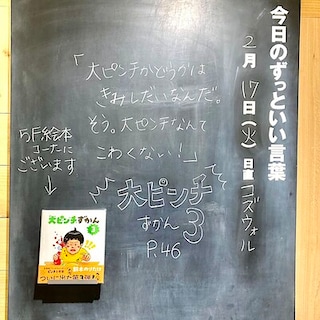 今日のずっといい言葉
2月17日(火) 日直 コズウォル
「大ピンチかどうかは
きみしだいなんだ。
そう。大ピンチなんて
こわくない！」
大ピンチ
ずかん3
P.46
5F絵本
コーナーに
ございます
大ピンチずかん
3